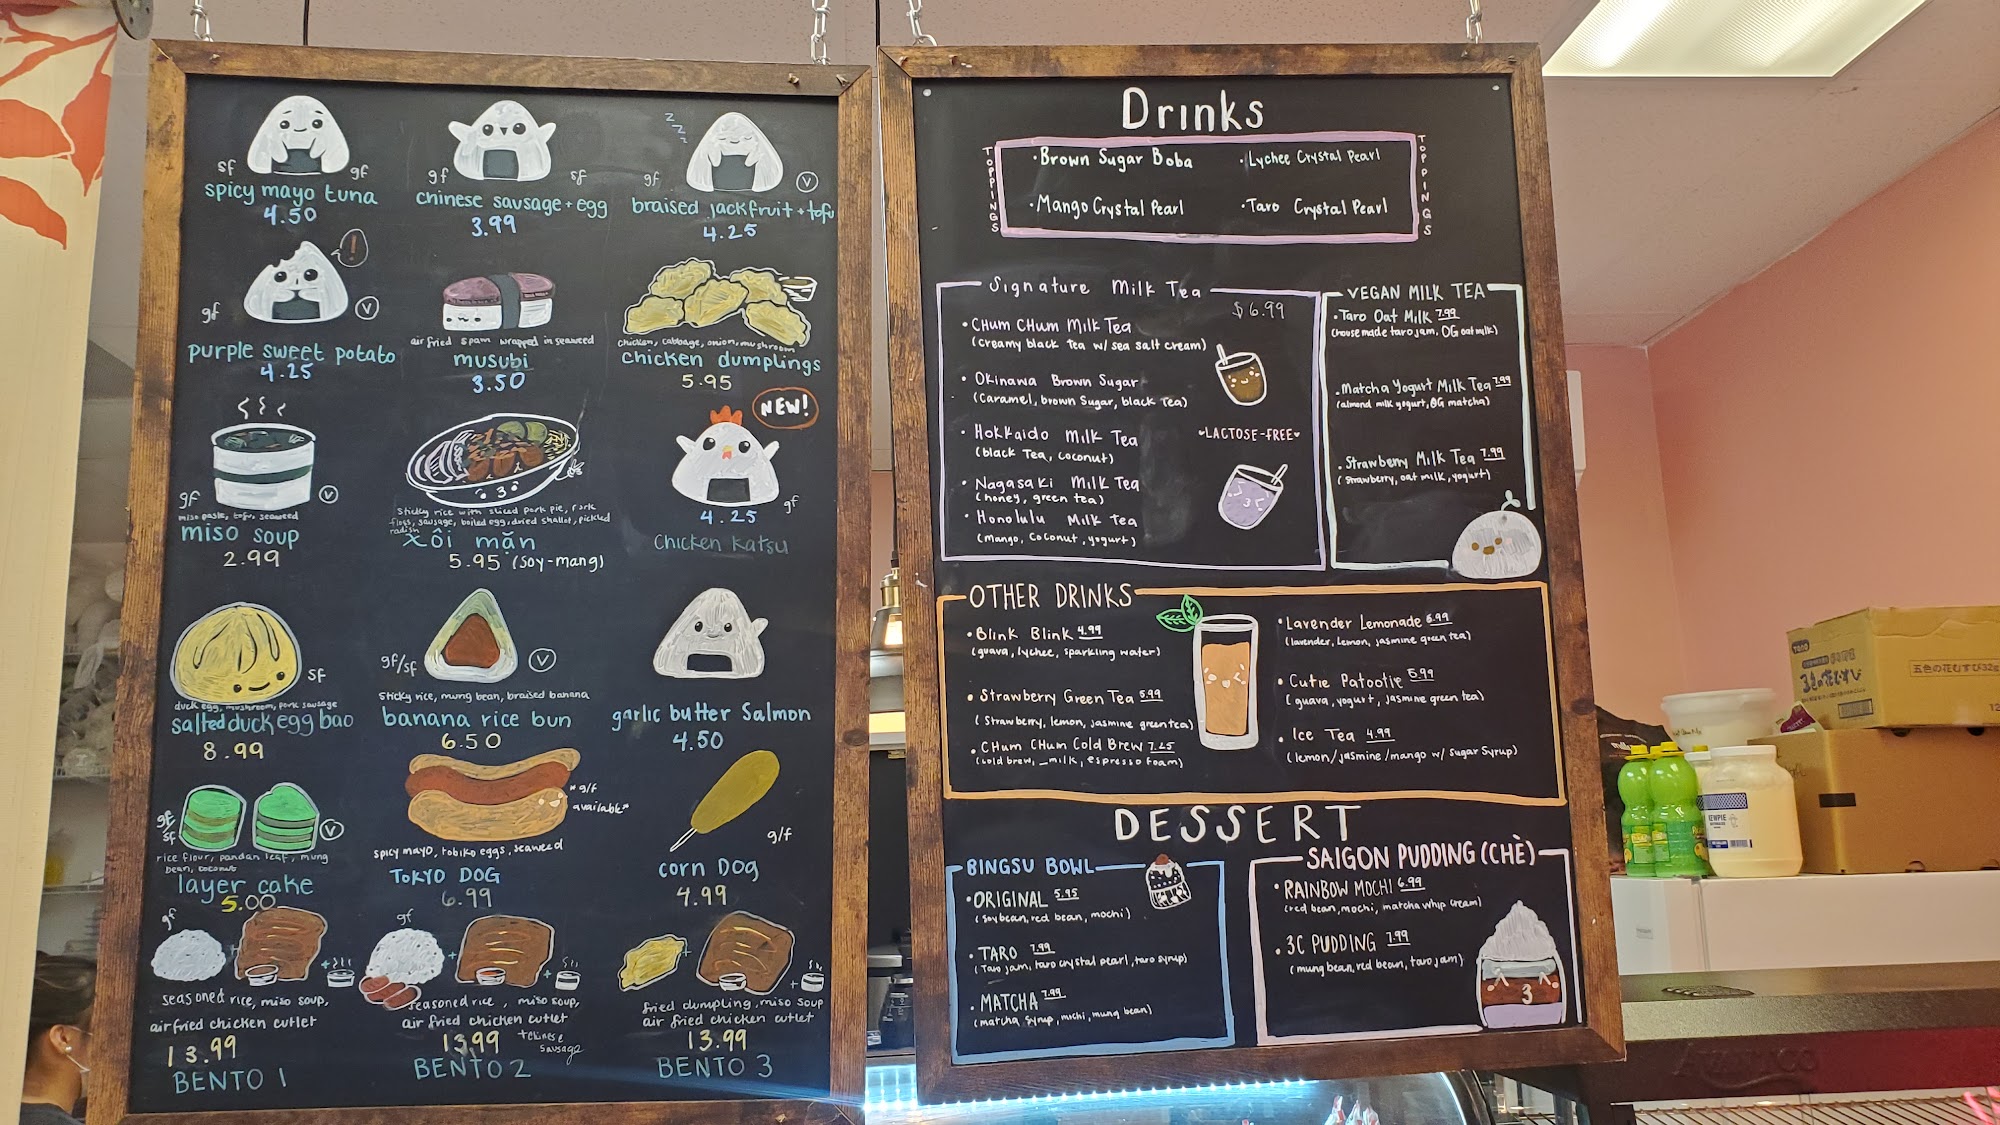 sf
gf
spicy mayo tuna
4.50
gf
sf
chinese sausage + egg
3.99
z
z
z
gf
V
braised jackfruit + tofu
4.25
!
gf
V
purple sweet potato
4.25
air fried spam wrapped in seaweed
musubi
3.50
chicken, cabbage, onion, mushroom
chicken dumplings
5.95
gf
V
miso paste, tofu, seaweed
miso soup
2.99
Sticky rice with sliced pork pie, pork
floss, sausage, boiled egg, dried shallot, pickled
radish
xôi mặn
5.95 (soy-mang)
NEW!
gf
4.25
Chicken Katsu
sf
duck egg, mushroom, pork sausage
salted duck egg bao
8.99
gf/sf
V
Sticky rice, mung bean, braised banana
banana rice bun
6.50
garlic butter Salmon
4.50
gf/sf
V
rice flour, pandan leaf, mung
bean, coconut
layer cake
5.00
*g/f
available*
spicy mayo, tobiko eggs, seaweed
TOKYO DOG
6.99
g/f
corn Dog
4.99
gf
seasoned rice, miso soup,
air fried chicken cutlet
13.99
BENTO 1
gf
seasoned rice, miso soup,
air fried chicken cutlet
+ chinese
sausage
13.99
BENTO 2
fried dumpling, miso soup
air fried chicken cutlet
13.99
BENTO 3
Drinks
TOPPINGS
• Brown Sugar Boba
• Lychee Crystal Pearl
• Mango Crystal Pearl
• Taro Crystal Pearl
TOPPINGS
Signature Milk Tea
$6.99
• CHUM CHUM MILK TEA
(creamy black tea w/ sea salt cream)
• Okinawa Brown Sugar
(Caramel, brown sugar, black tea)
• Hokkaido Milk Tea
(black tea, coconut)
• Nagasaki Milk Tea
(honey, green tea)
• Honolulu Milk Tea
(mango, coconut, yogurt)
LACTOSE-FREE
VEGAN MILK TEA
• Taro Oat Milk 7.99
(house made taro jam, OG oat milk)
• Matcha Yogurt Milk Tea 7.99
(almond milk yogurt, OG matcha)
• Strawberry Milk Tea 7.99
(strawberry, oat milk, yogurt)
OTHER DRINKS
• Blink Blink 4.99
(guava, lychee, sparkling water)
• Strawberry Green Tea 5.99
(strawberry, lemon, jasmine green tea)
• CHUM CHUM Cold Brew 7.25
(cold brew, _milk, espresso foam)
• Lavender Lemonade 6.99
(lavender, lemon, jasmine green tea)
• Cutie Patootie 5.99
(guava, yogurt, jasmine green tea)
• Ice Tea 4.99
(lemon/jasmine/mango w/ sugar syrup)
DESSERT
BINGSU BOWL
• ORIGINAL 5.95
(soybean, red bean, mochi)
• TARO 7.99
(Taro jam, taro crystal pearl, taro syrup)
• MATCHA 7.99
(matcha syrup, mochi, mung bean)
SAIGON PUDDING (CHÈ)
• RAINBOW MOCHI 6.99
(red bean, mochi, matcha whip cream)
• 3C PUDDING 7.99
(mung bean, red bean, taro jam)
五色の花むすび32g
KEWPIE
AVANTCO